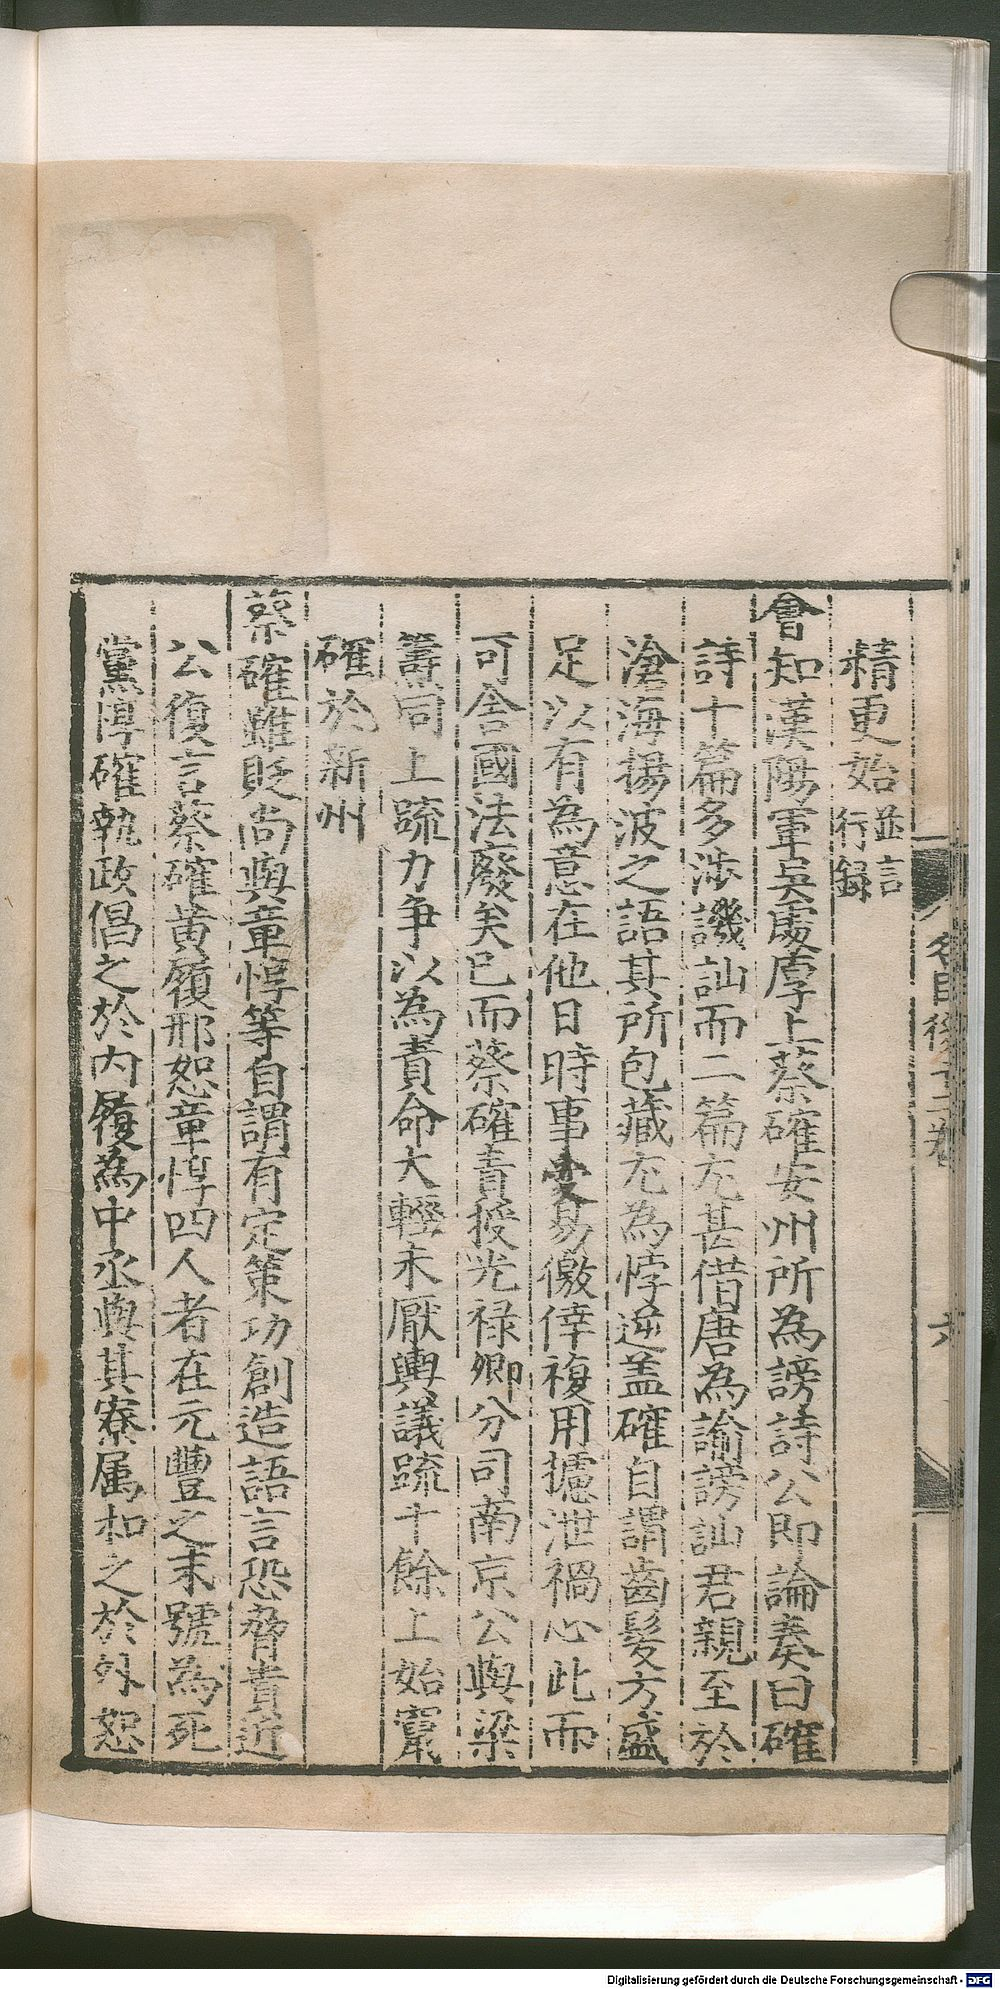 精更始並言行録
會知漢陽軍吳處厚上蔡確安州所為謗詩公即論奏曰確
詩十篇多渉譏訕而二篇尤甚借唐為諭謗訕君親至於
滄海揚波之語其所包藏尤為悖逆盖確自謂齒髮方盛
足以有為意在他日時事变易儌倖複用攄泄禍心此而
可舍國法廢矣已而蔡確責授光禄卿分司南京公與梁
籌同上疏力争以為責命大輕未厭輿議疏十餘上始竄
確於新州
蔡確雖貶尚與章惇等自謂有定策功創造語言恐脅貴近
公復言蔡確黄履邢恕章惇四人者在元豐之末號為死
黨惇確執政倡之於内履為中丞與其寮属和之於外恕
名臣後十二卷
六
Digitalisierung gefördert durch die Deutsche Forschungsgemeinschaft - DFG